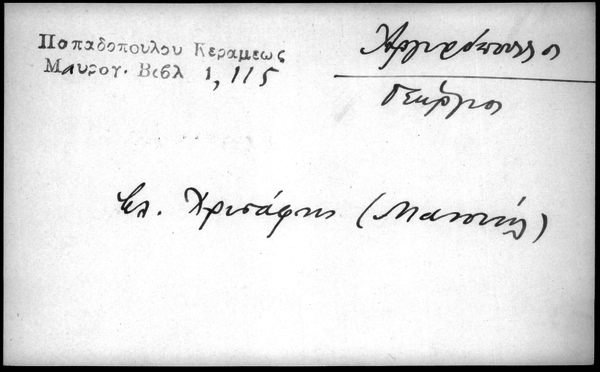 Παπαδοπουλου Κεραμεως
Μαυρογ. Βιβλ 1, 115
Ἀργυρόπουλος
Γεώργιος
βλ. Χρυσάφης (Μανουήλ)